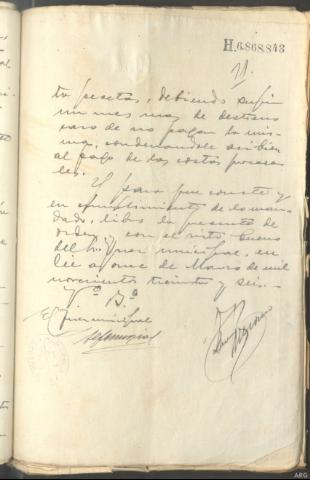 H.6.868.843
11.
to pesetas, debiendo sufrir
un mes mas de destierro
caso de no pagar la mis-
ma, condenandole asi bien
al pago de las costas procesa
les.
Y para que conste y
en cumplimiento de lo man
dado, libro la presente de
orden y con el visto bueno
del Sr. Juez municipal, en
a once de Marzo de mil
novecientos treinta y seis.
Vº Bº
El Juez municipal
ARG